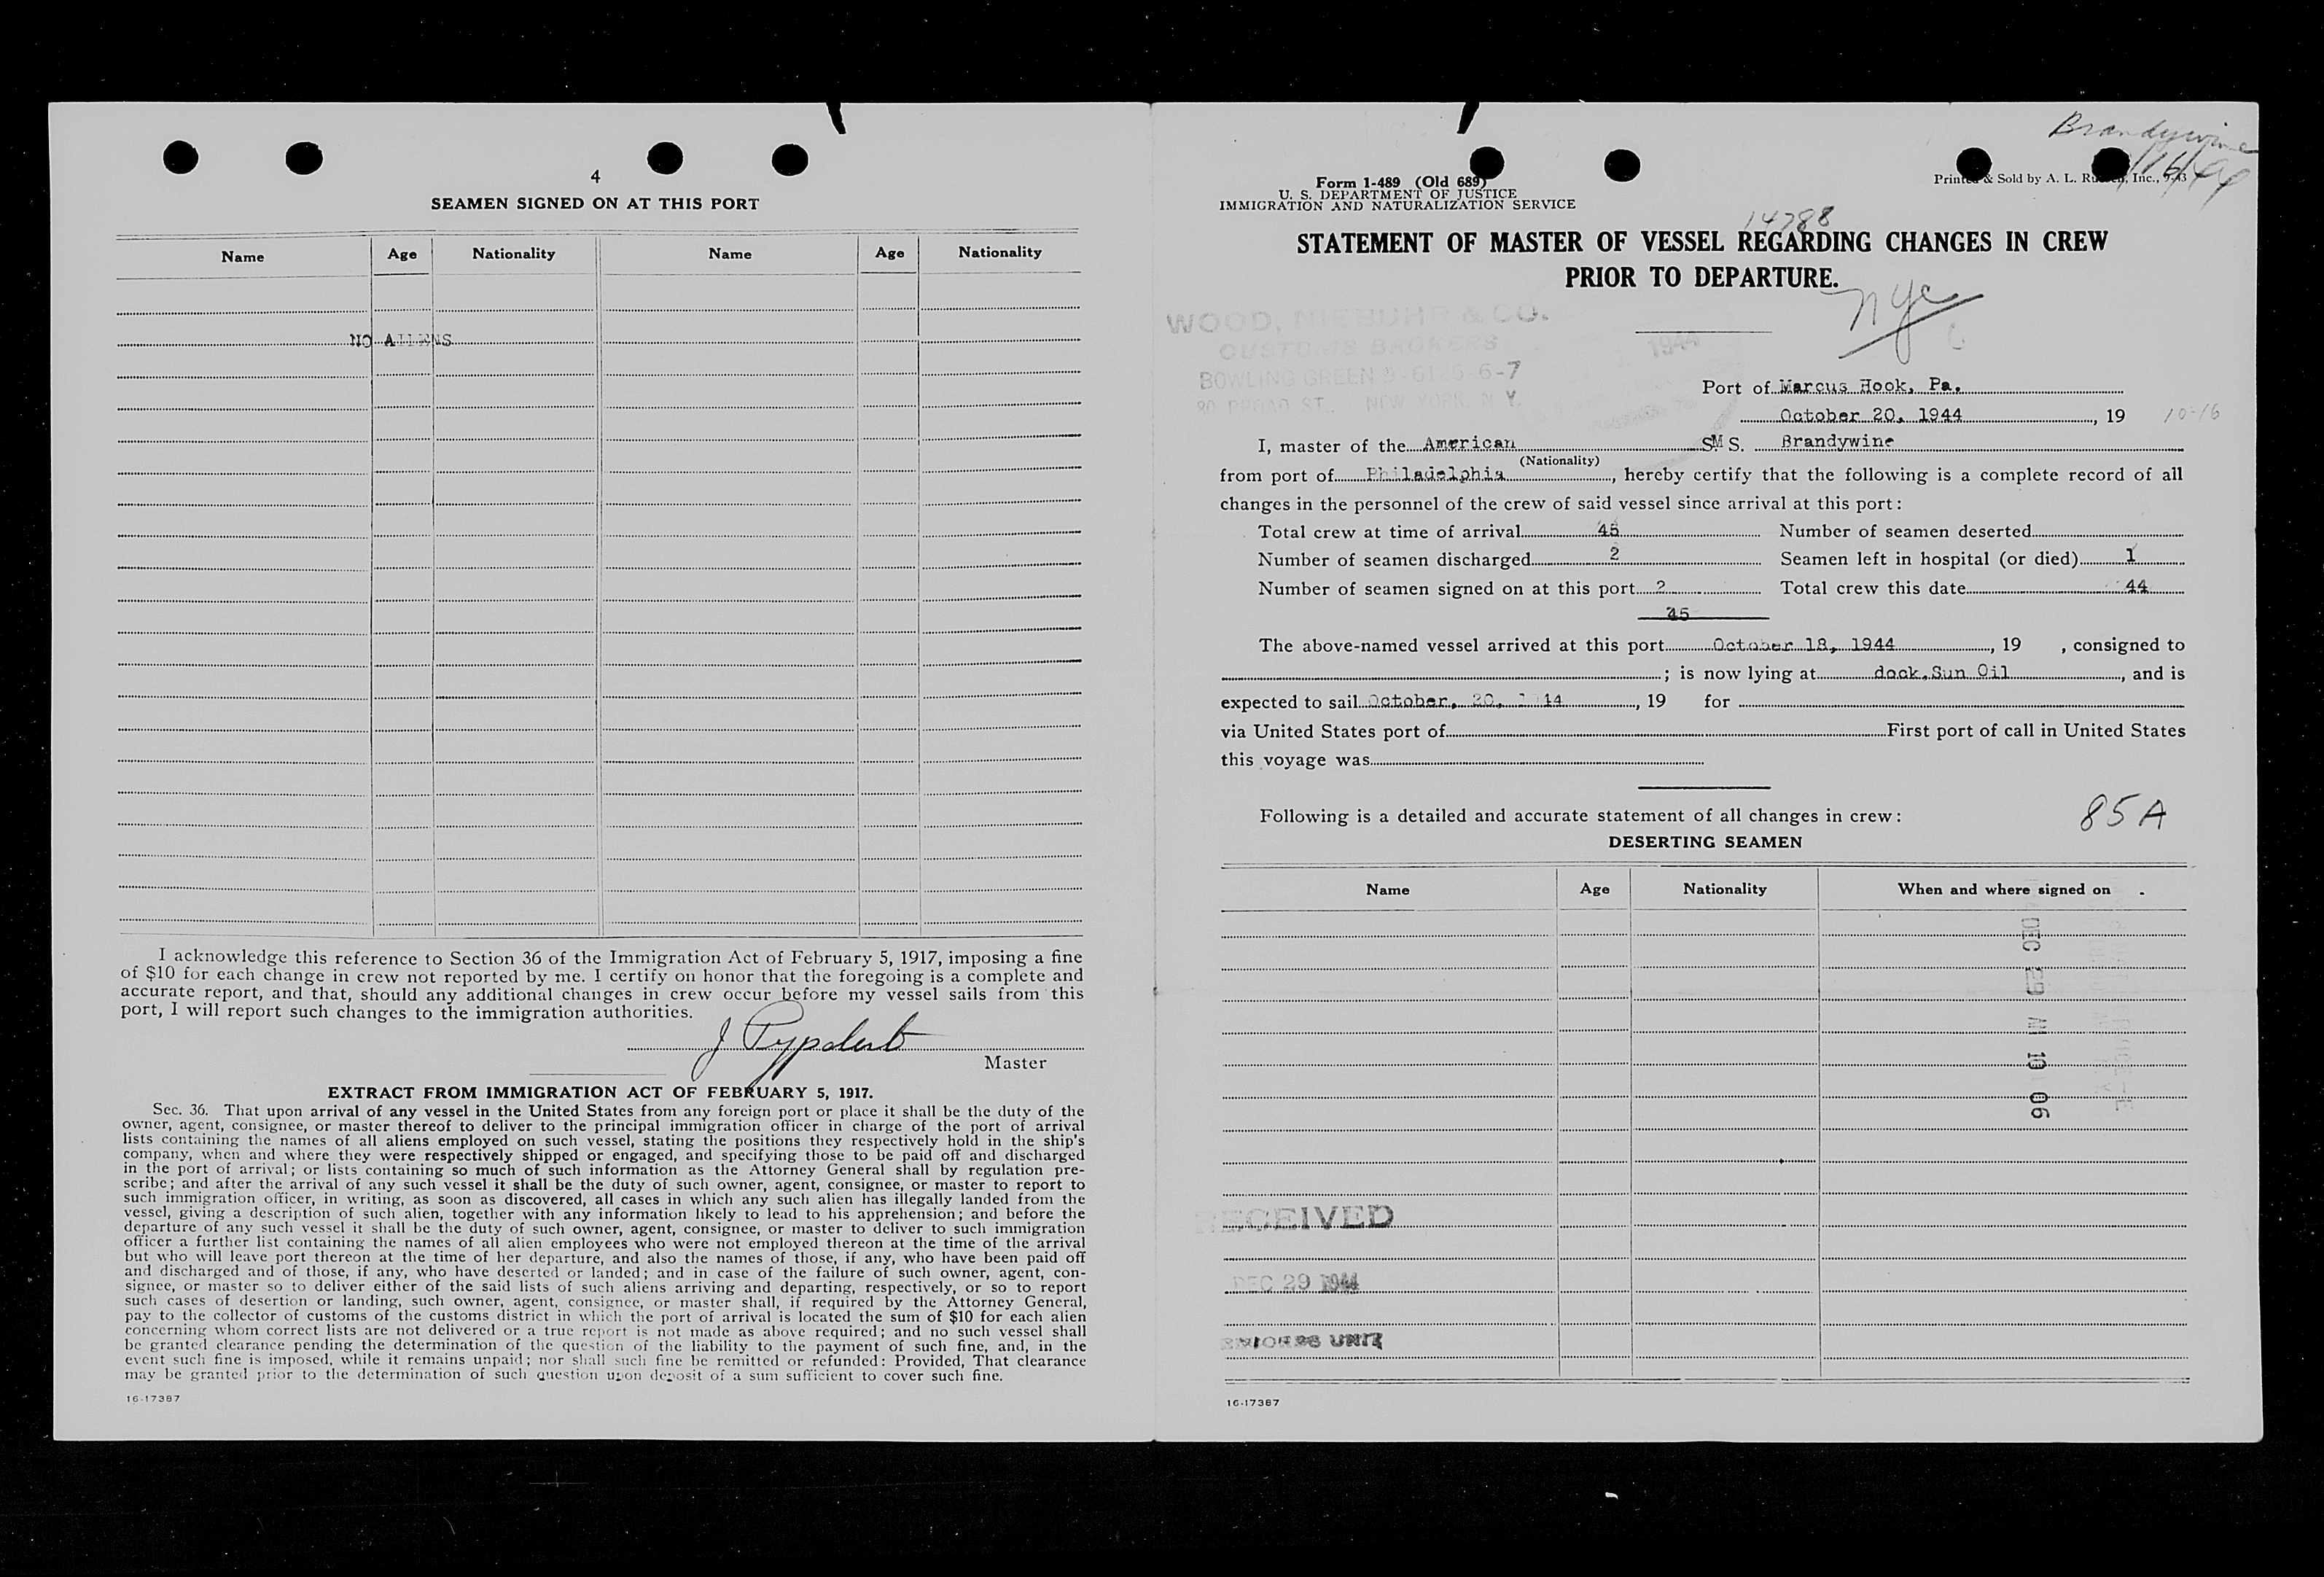 4
SEAMEN SIGNED ON AT THIS PORT
Name Age Nationality Name Age Nationality
NO ALIENS
I acknowledge this reference to Section 36 of the Immigration Act of February 5, 1917, imposing a fine
of $10 for each change in crew not reported by me. I certify on honor that the foregoing is a complete and
accurate report, and that, should any additional changes in crew occur before my vessel sails from this
port, I will report such changes to the immigration authorities.
J
Master
EXTRACT FROM IMMIGRATION ACT OF FEBRUARY 5, 1917.
Sec. 36. That upon arrival of any vessel in the United States from any foreign port or place it shall be the duty of the
owner, agent, consignee, or master thereof to deliver to the principal immigration officer in charge of the port of arrival
lists containing the names of all aliens employed on such vessel, stating the positions they respectively hold in the ship's
company, when and where they were respectively shipped or engaged, and specifying those to be paid off and discharged
in the port of arrival; or lists containing so much of such information as the Attorney General shall by regulation pre-
scribe; and after the arrival of any such vessel it shall be the duty of such owner, agent, consignee, or master to report to
such immigration officer, in writing, as soon as discovered, all cases in which any such alien has illegally landed from the
vessel, giving a description of such alien, together with any information likely to lead to his apprehension; and before the
departure of any such vessel it shall be the duty of such owner, agent, consignee, or master to deliver to such immigration
officer a further list containing the names of all alien employees who were not employed thereon at the time of the arrival
but who will leave port thereon at the time of her departure, and also the names of those, if any, who have been paid off
and discharged and of those, if any, who have deserted or landed; and in case of the failure of such owner, agent, con-
signee, or master so to deliver either of the said lists of such aliens arriving and departing, respectively, or so to report
such cases of desertion or landing, such owner, agent, consignee, or master shall, if required by the Attorney General,
pay to the collector of customs of the customs district in which the port of arrival is located the sum of $10 for each alien
concerning whom correct lists are not delivered or a true report is not made as above required; and no such vessel shall
be granted clearance pending the determination of the question of the liability to the payment of such fine, and, in the
event such fine is imposed, while it remains unpaid; nor shall such fine be remitted or refunded: Provided, That clearance
may be granted prior to the determination of such question upon deposit of a sum sufficient to cover such fine.
16-17387
Brandywine
Form 1-489 (Old 689)
U. S. DEPARTMENT OF JUSTICE
IMMIGRATION AND NATURALIZATION SERVICE
Printed & Sold by A. L. Inc., 9-43
14788
STATEMENT OF MASTER OF VESSEL REGARDING CHANGES IN CREW
PRIOR TO DEPARTURE.
nyc
WOOD, NIEBUHR & CO.
CUSTOMS BROKERS
BOWLING GREEN 9-6125-6-7
80 BROAD ST., NEW YORK, N. Y.
1944
Port of Marcus Hook, Pa.
October 20, 1944, 19 10-16
I, master of the American S.M S. Brandywine
(Nationality)
from port of Philadelphia, hereby certify that the following is a complete record of all
changes in the personnel of the crew of said vessel since arrival at this port:
Total crew at time of arrival 45 Number of seamen deserted
Number of seamen discharged 2 Seamen left in hospital (or died) 1
Number of seamen signed on at this port 2 Total crew this date 44
45
The above-named vessel arrived at this port October 18, 1944, 19 , consigned to
; is now lying at dock, Sun Oil, and is
expected to sail October, 20, 1944, 19 for
via United States port of First port of call in United States
this voyage was
Following is a detailed and accurate statement of all changes in crew: 85A
DESERTING SEAMEN
Name Age Nationality When and where signed on
DEC 29 AM 10 06
RECEIVED
DEC 29 1944
UNIT
16-17387